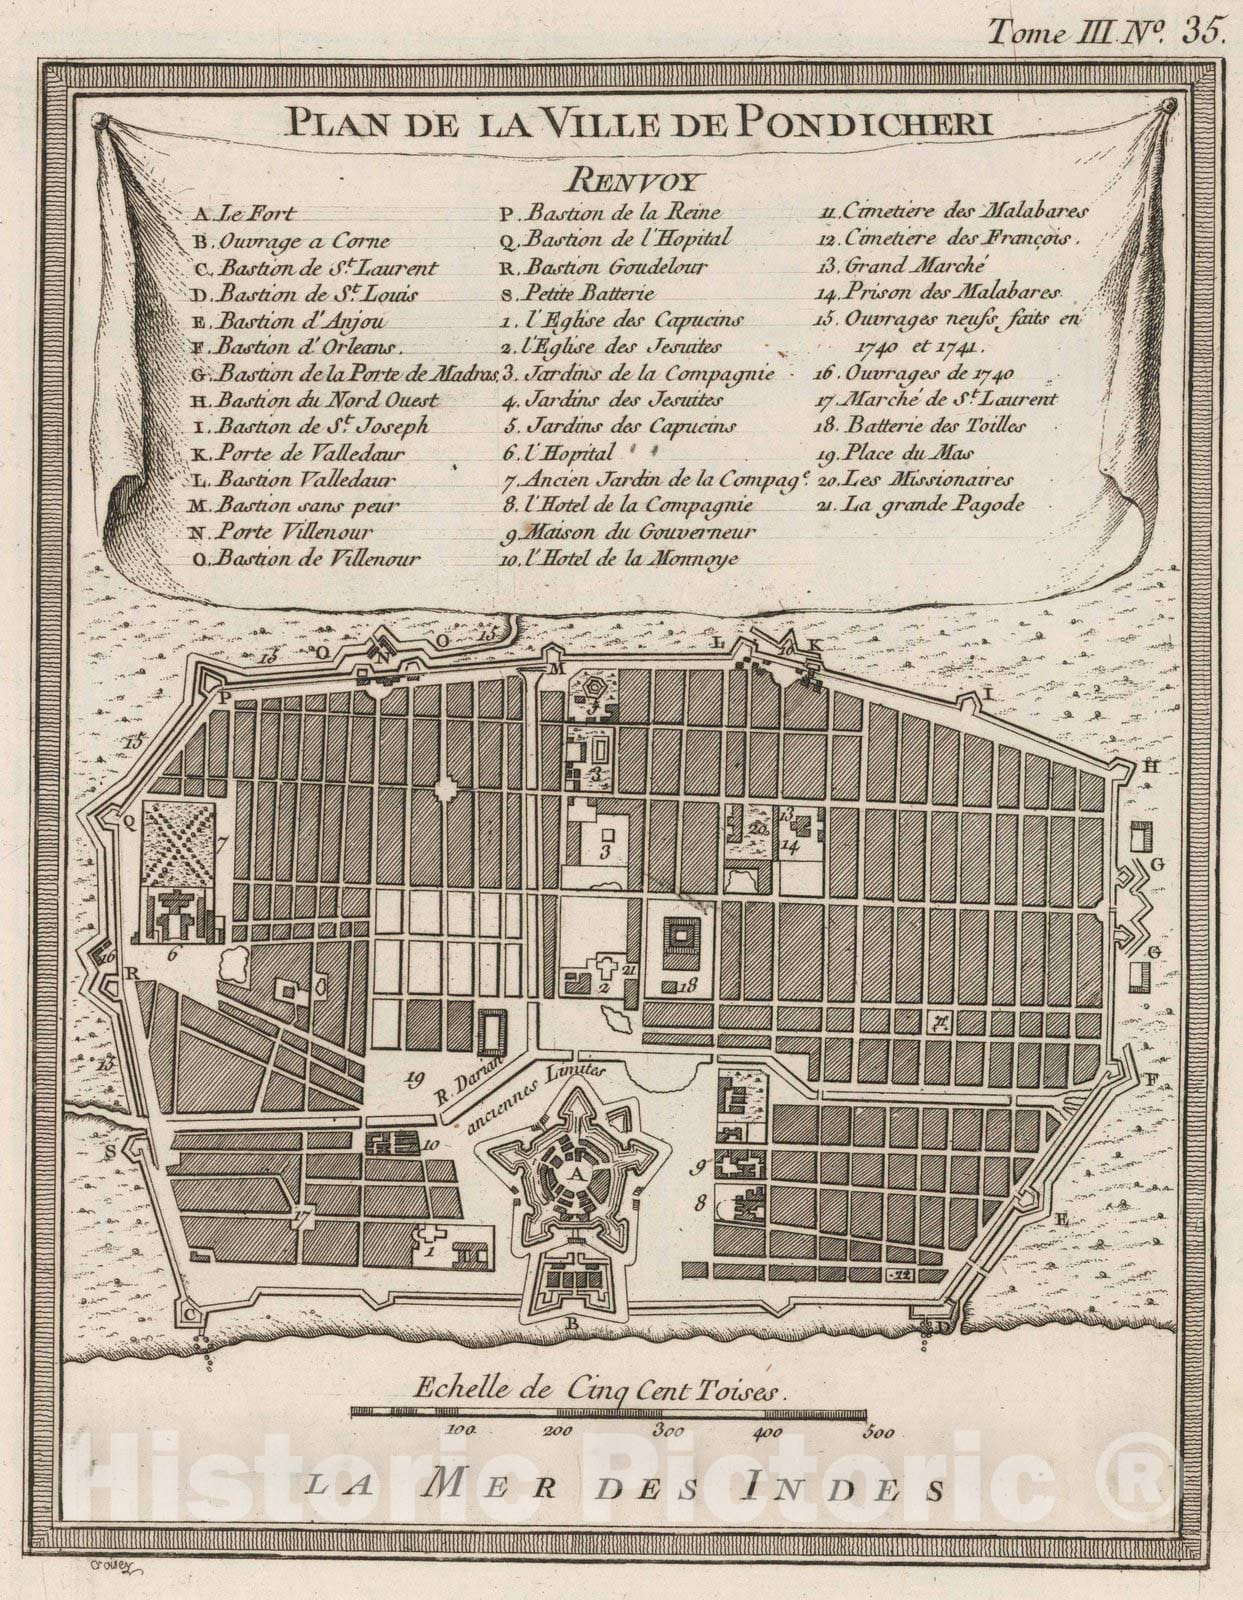 Tome III. Nº. 35.
PLAN DE LA VILLE DE PONDICHERI
RENVOY
A. Le Fort
B. Ouvrage a Corne
C. Bastion de St. Laurent
D. Bastion de St. Louis
E. Bastion d'Anjou
F. Bastion d'Orleans.
G. Bastion de la Porte de Madras,
H. Bastion du Nord Ouest
I. Bastion de St. Joseph
K. Porte de Valledaur
L. Bastion Valledaur
M. Bastion sans peur
N. Porte Villenour
O. Bastion de Villenour
P. Bastion de la Reine
Q. Bastion de l'Hopital
R. Bastion Goudelour
S. Petite Batterie
1. l'Eglise des Capucins
2. l'Eglise des Jesuites
3. Jardins de la Compagnie
4. Jardins des Jesuites
5. Jardins des Capucins
6. l'Hopital
7. Ancien Jardin de la Compage.
8. l'Hotel de la Compagnie
9. Maison du Gouverneur
10. l'Hotel de la Monnoye
11. Cimetiere des Malabares
12. Cimetiere des François.
13. Grand Marché
14. Prison des Malabares
15. Ouvrages neufs faits en
1740 et 1741.
16. Ouvrages de 1740
17. Marché de St. Laurent
18. Batterie des Toilles
19. Place du Mas
20. Les Missionaires
21. La grande Pagode
15 O N O 15
M L K I
P
15
H
Q 7 3 20 13 14
3
G
6 G
16 R 21 2 18
15 19 R. Darian
anciennes Limites
F
S 10 A 9
8 E
17 1
C B D
Echelle de Cinq Cent Toises.
100 200 300 400 500
LA MER DES INDES
Historic Pictoric ®
Crouey